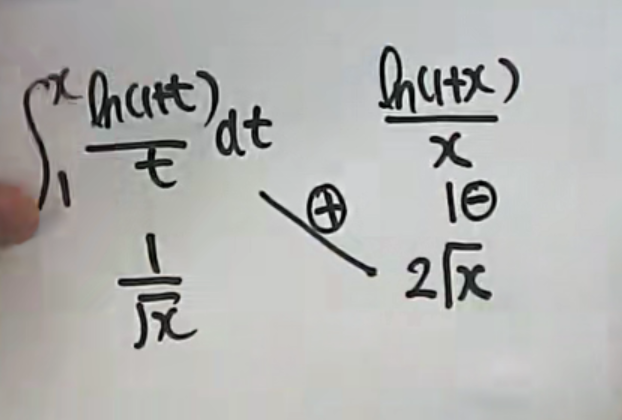 ∫₁ˣ ln(1+t)/t dt
ln(1+x)/x
⊕
1⊖
1/√x
2√x